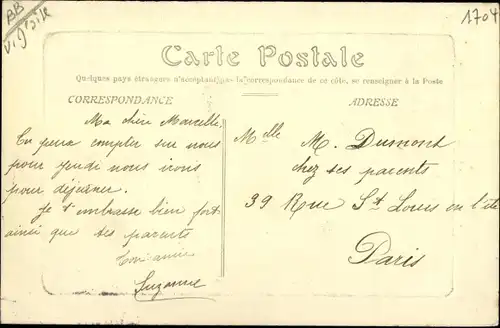 BB
1704
Carte Postale
Quelques pays étrangers n'acceptant pas la correspondance de ce côté, se renseigner à la Poste
CORRESPONDANCE
ADRESSE
Ma chère Marcelle,
Tu peux compter sur nous
pour jeudi nous irons
pour déjeuner.
Je t'embrasse bien fort
ainsi que tes parents
Ton amie
Suzanne
Melle M. Dumont
chez ses parents
39 Rue St Louis en l'île
Paris